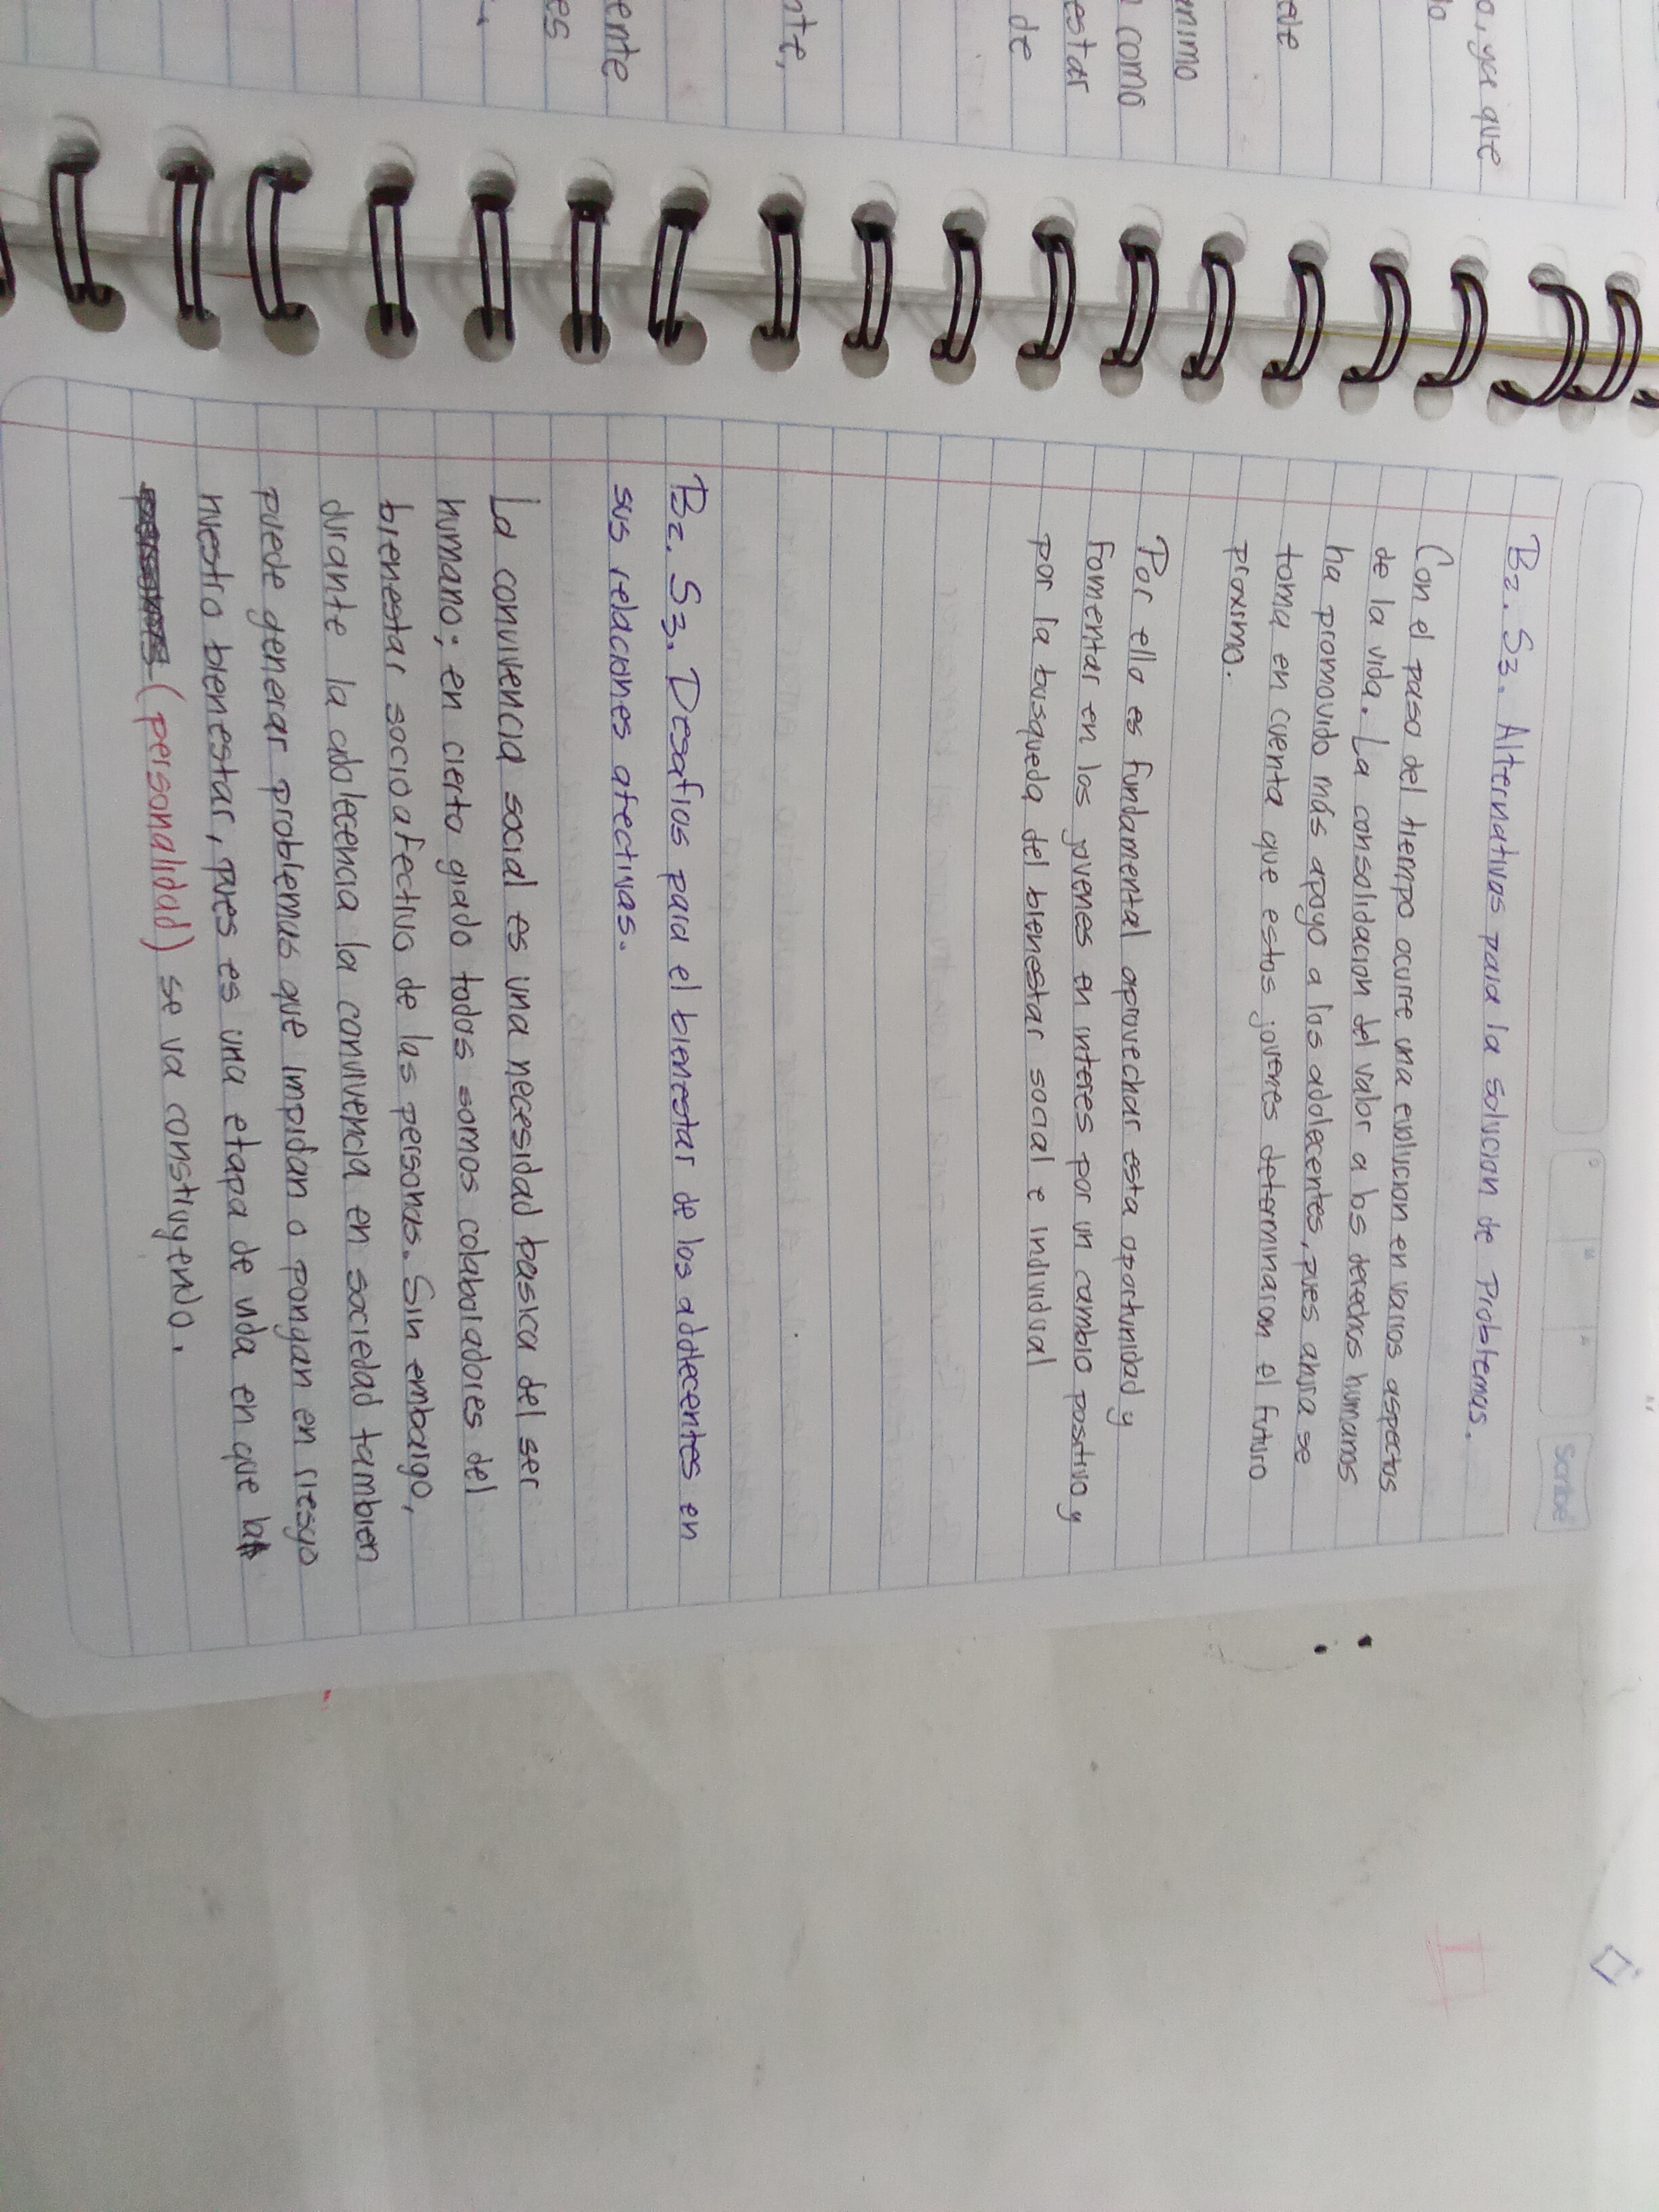 o, ya que
lo
ede
animo
como
estar
de
nte,
ente
es
Scribe
B2. S3. Alternativas para la solucion de Problemas.
Con el paso del tiempo ocurre una evolucion en varios aspectos
de la vida. La consolidacion del valor a los derechos humanos
ha promovido más apoyo a los adolecentes, pues ahora se
toma en cuenta que estos jovenes determinaron el futuro
proximo.
Por ello es fundamental aprovechar esta oportunidad y
fomentar en los jovenes en interes por un cambio positivo y
por la busqueda del bienestar social e individual
B2. S3. Desafios para el bienestar de los adolecentes en
sus relaciones afectivas.
La convivencia social es una necesidad basica del ser
humano; en cierto grado todos somos colaboradores del
bienestar socioafectivo de las personas. Sin embargo,
durante la adolecencia la convivencia en sociedad tambien
puede generar problemas que impidan o pongan en riesgo
nuestro bienestar, pues es una etapa de vida en que la
(personalidad) se va construyendo.